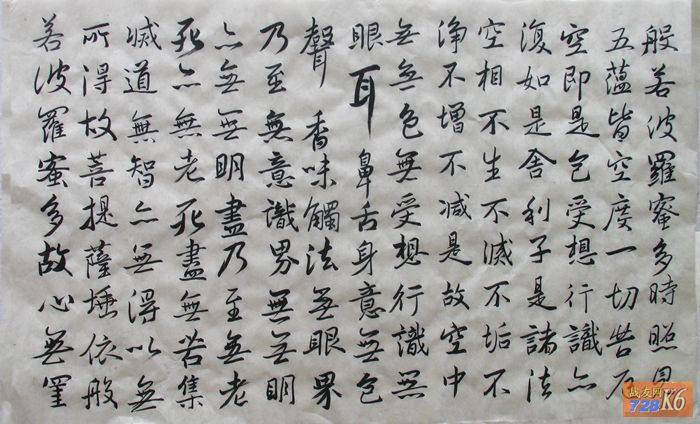 般若波羅蜜多時照見
五蘊皆空度一切苦厄
空即是色受想行識亦
復如是舍利子是諸法
空相不生不滅不垢不
淨不增不減是故空中
無無色無受想行識無
眼耳鼻舌身意無色
聲香味觸法無眼界
乃至無意識界無無明
亦無無明盡乃至無老
死亦無老死盡無苦集
滅道無智亦無得以無
所得故菩提薩埵依般
若波羅蜜多故心無罣
战友网
728 K6